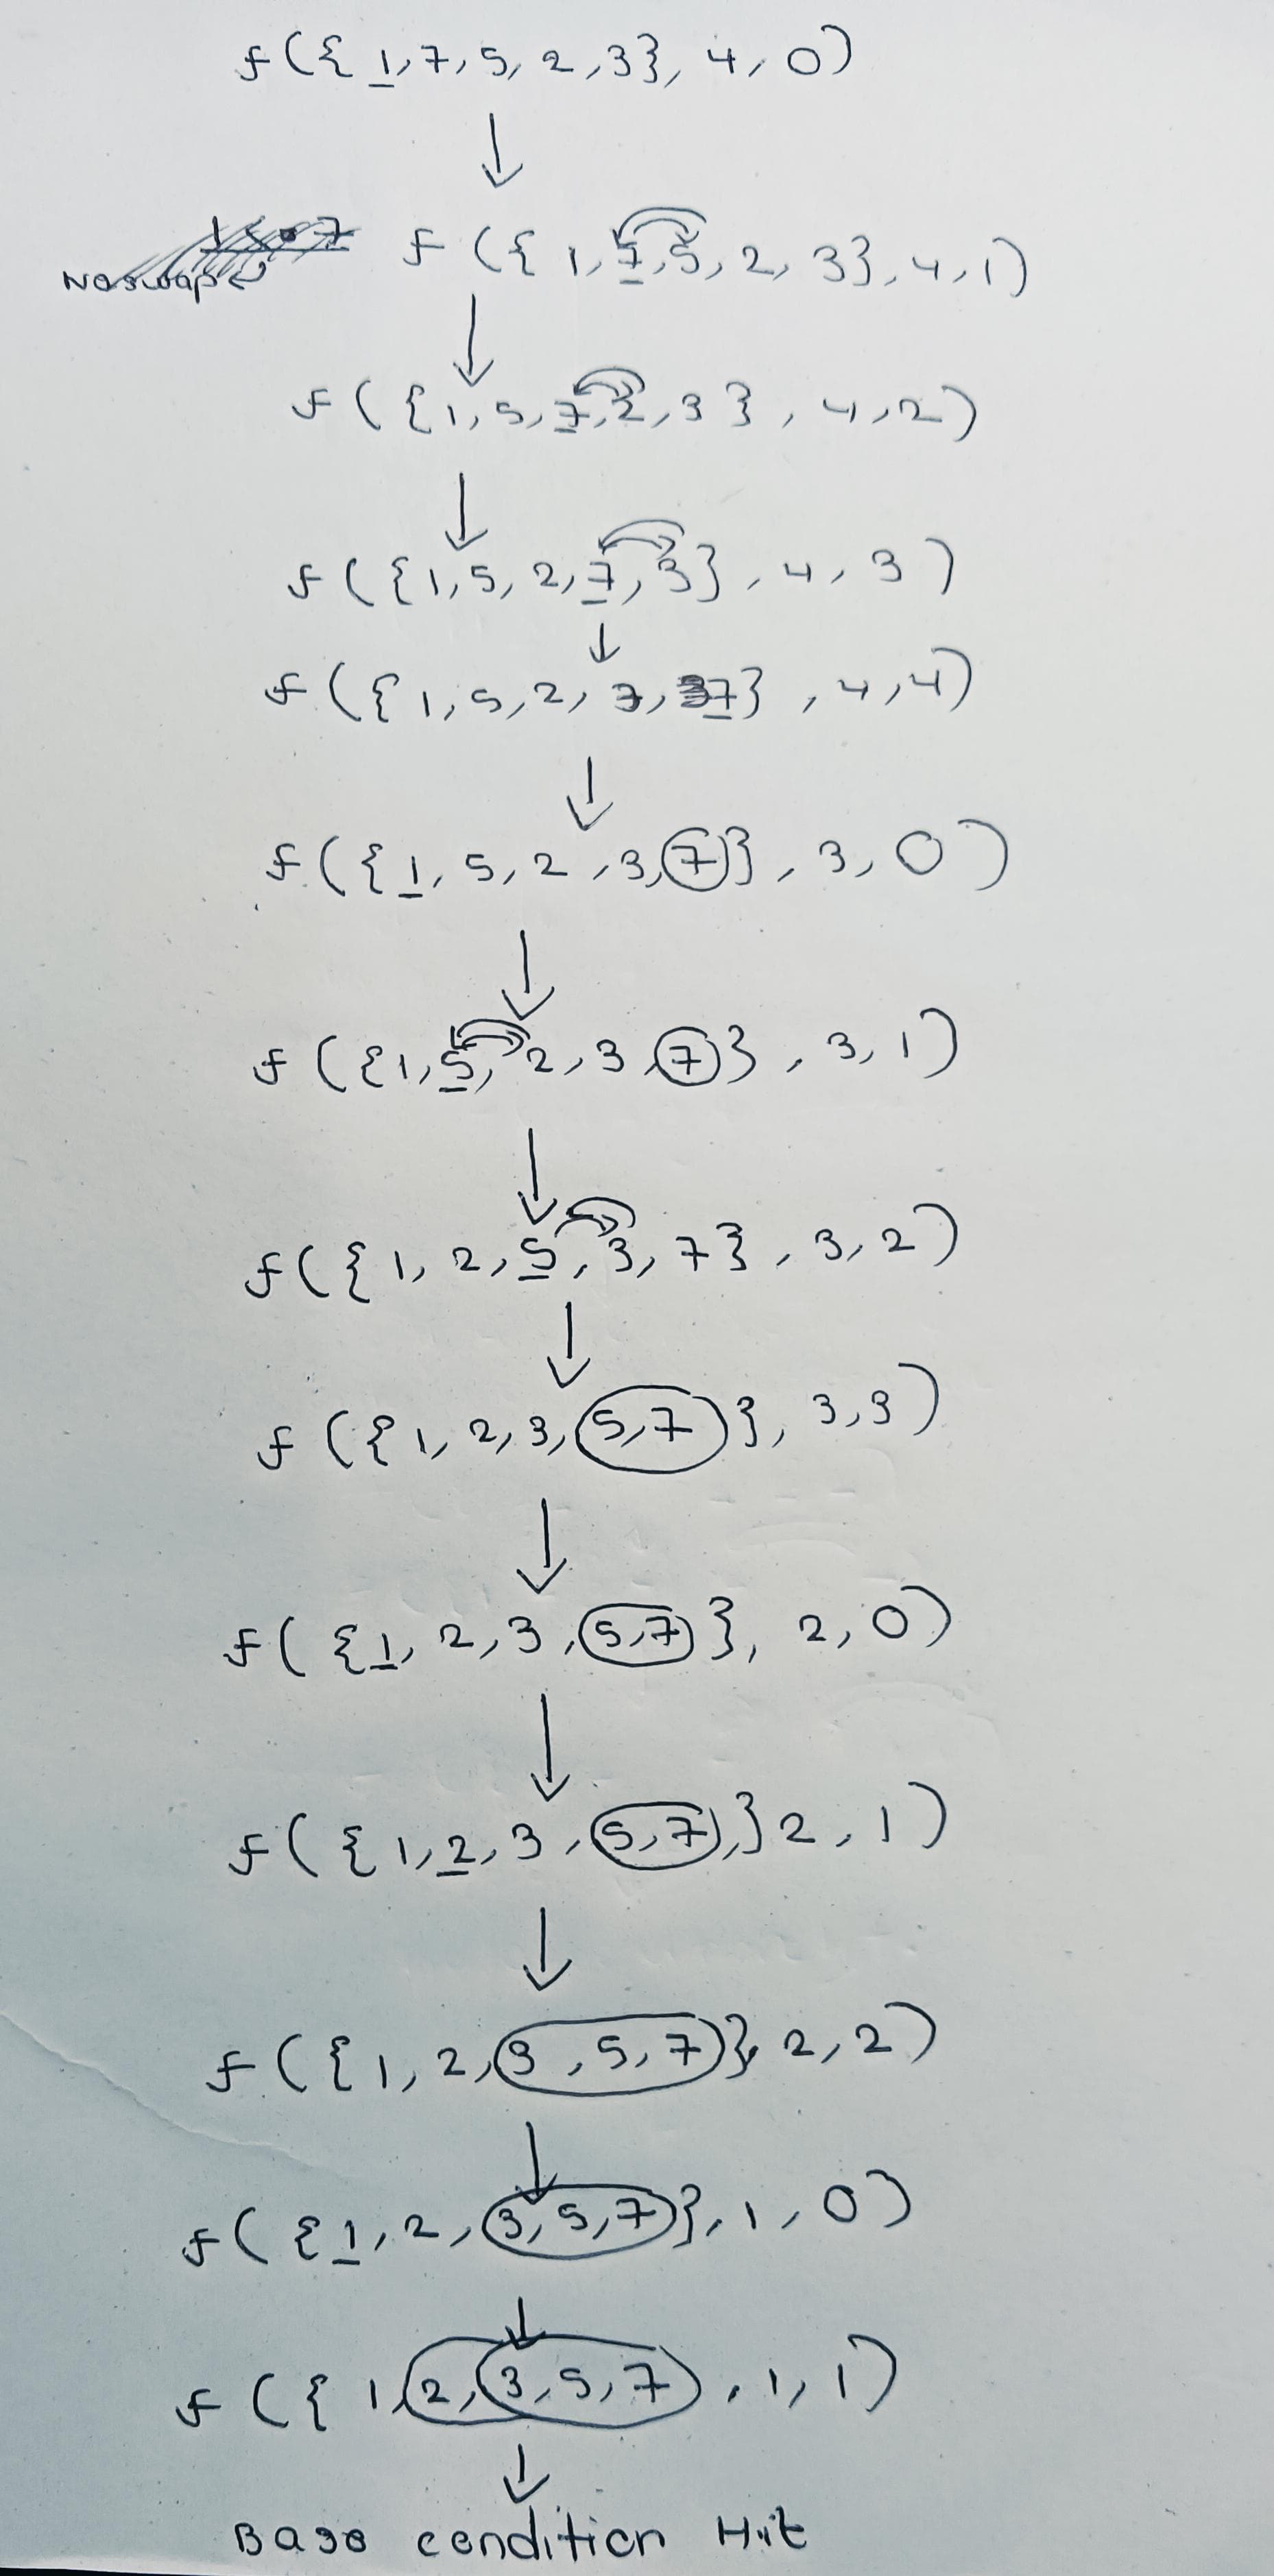 f({1,7,5,2,3},4,0)
1<7 f({1,7,5,2,3},4,1)
No swap
f({1,5,7,2,3},4,2)
f({1,5,2,7,3},4,3)
f({1,5,2,3,7},4,4)
f({1,5,2,3,7},3,0)
f({1,5,2,3,7},3,1)
f({1,2,5,3,7},3,2)
f({1,2,3,5,7},3,3)
f({1,2,3,5,7},2,0)
f({1,2,3,5,7,}2,1)
f({1,2,3,5,7},2,2)
f({1,2,3,5,7},1,0)
f({1,2,3,5,7,1,1)
Base condition Hit